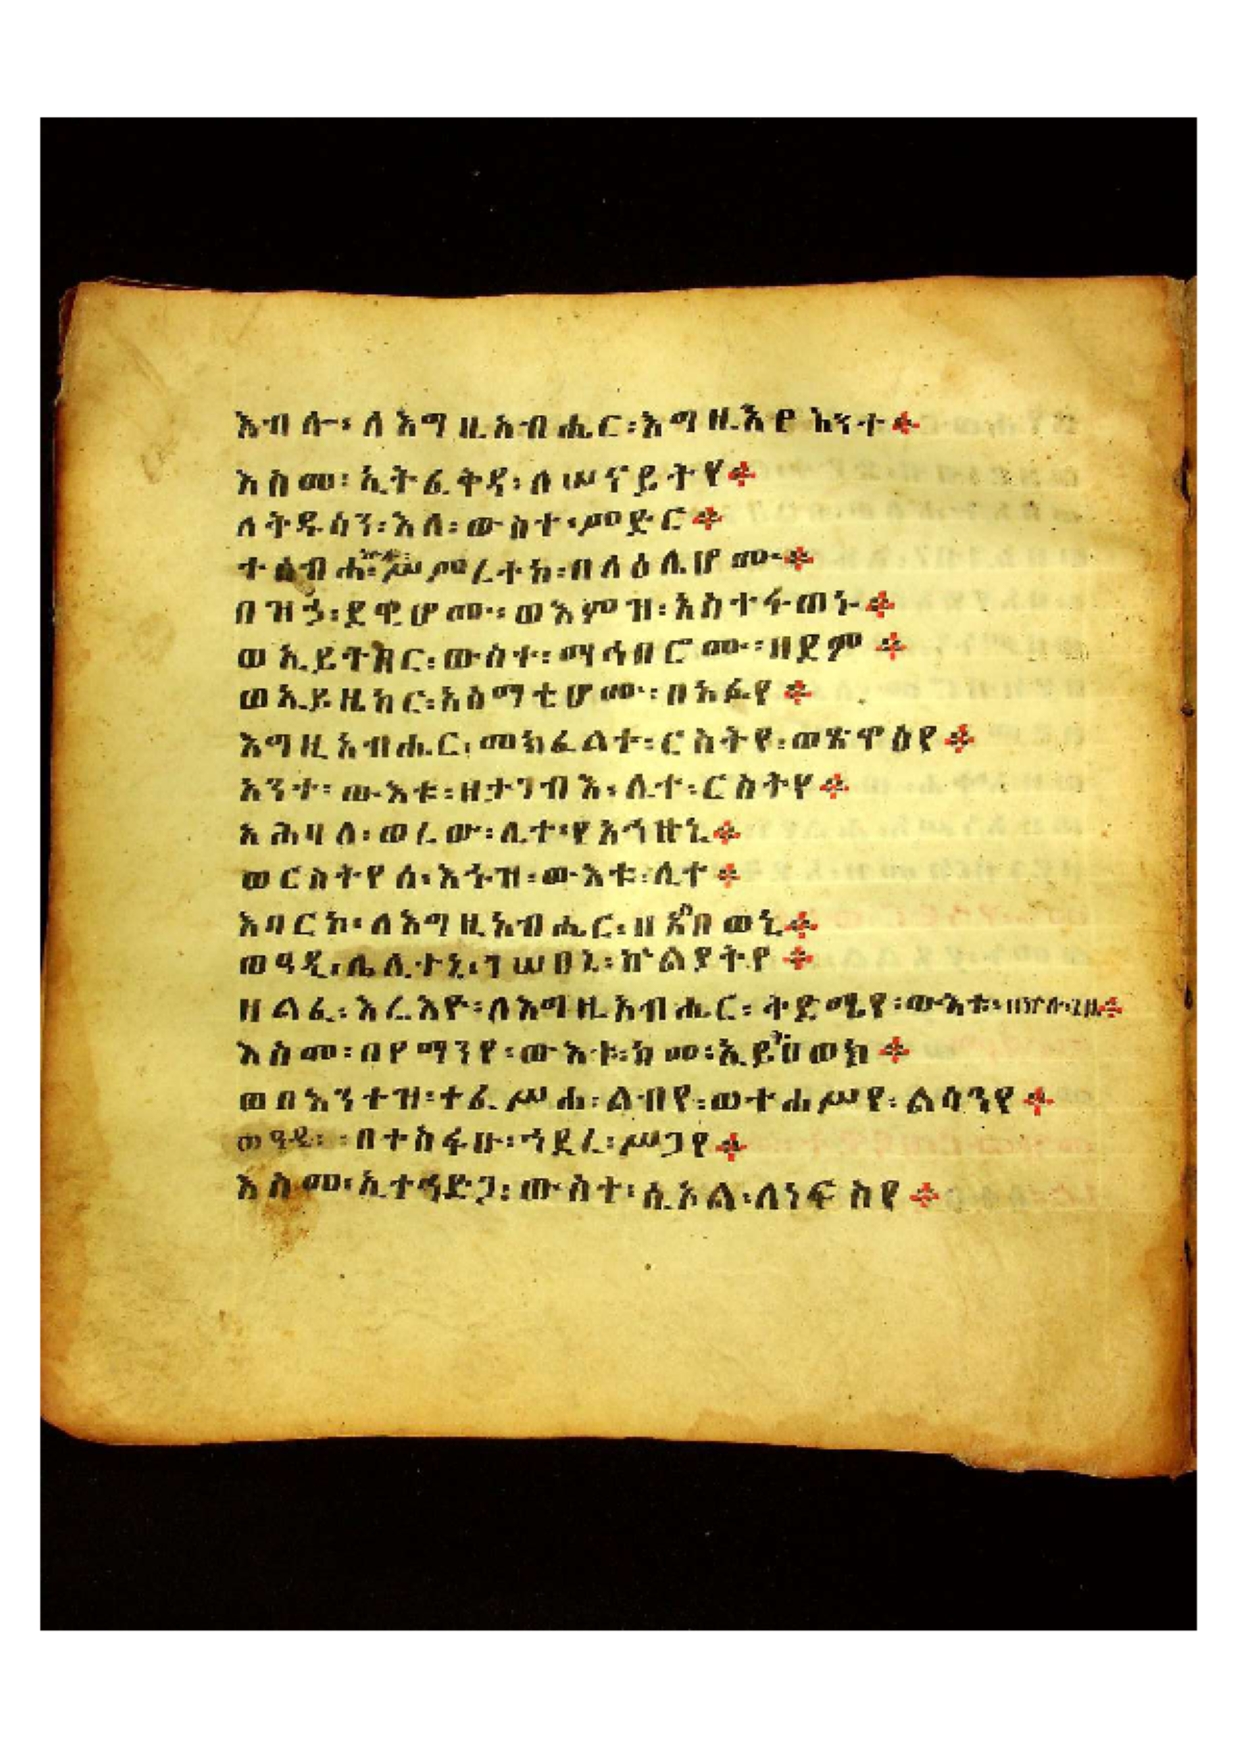 እብሎ፡ ለእግዚአብሔር፡ እግዚእየ አንተ፨
እስመ፡ ኢትፈቅዳ፡ ለሠናይትየ፨
ለትዱሳን፡ እለ፡ ውስተ፡ ምድር፨
ተሰብሐ፡ ኵሉ፡ ሥምረትከ፡ በላዕሌሆሙ፨
በዝኃ፡ ደዌሆሙ፡ ወእምዝ፡ አስተፋጠኑ፨
ወኢይትኃበር፡ ውስተ፡ ማኅበሮሙ፡ ዘደም፨
ወኢይዜከር፡ አስማቲሆሙ፡ በአፉየ፨
እግዚአብሔር፡ መክፈልተ፡ ርስትየ፡ ወጽዋዕየ፨
አንተ፡ ውእቱ፡ ዘታገብእ፡ ሊተ፡ ርስትየ፨
አሕባለ፡ ወረው፡ ሊተ፡ የአኅዙኒ፨
ወርስትየሰ፡ እኁዝ፡ ውእቱ፡ ሊተ፨
እባርኮ፡ ለእግዚአብሔር፡ ዘጾበወኒ፨
ወዓዲ፡ ሌሊተኒ፡ ገሠፀኒ፡ ኵልያትየ፨
ዘልፈ፡ እሬእዮ፡ ለእግዚአብሔር፡ ቅድሜየ፡ ውእቱ፡ በኵሉ፡ ጊዜ፨
እስመ፡ በየማንየ፡ ውእቱ፡ ከመ፡ ኢይትሀወክ፨
ወበእንተዝ፡ ተፈሥሐ፡ ልብየ፡ ወተሐሥየ፡ ልሳንየ፨
ወዓዲ፡ በተስፋሁ፡ ኀደረ፡ ሥጋየ፨
እስመ፡ ኢተኀድጋ፡ ውስተ፡ ሲኦል፡ ለነፍስየ፨